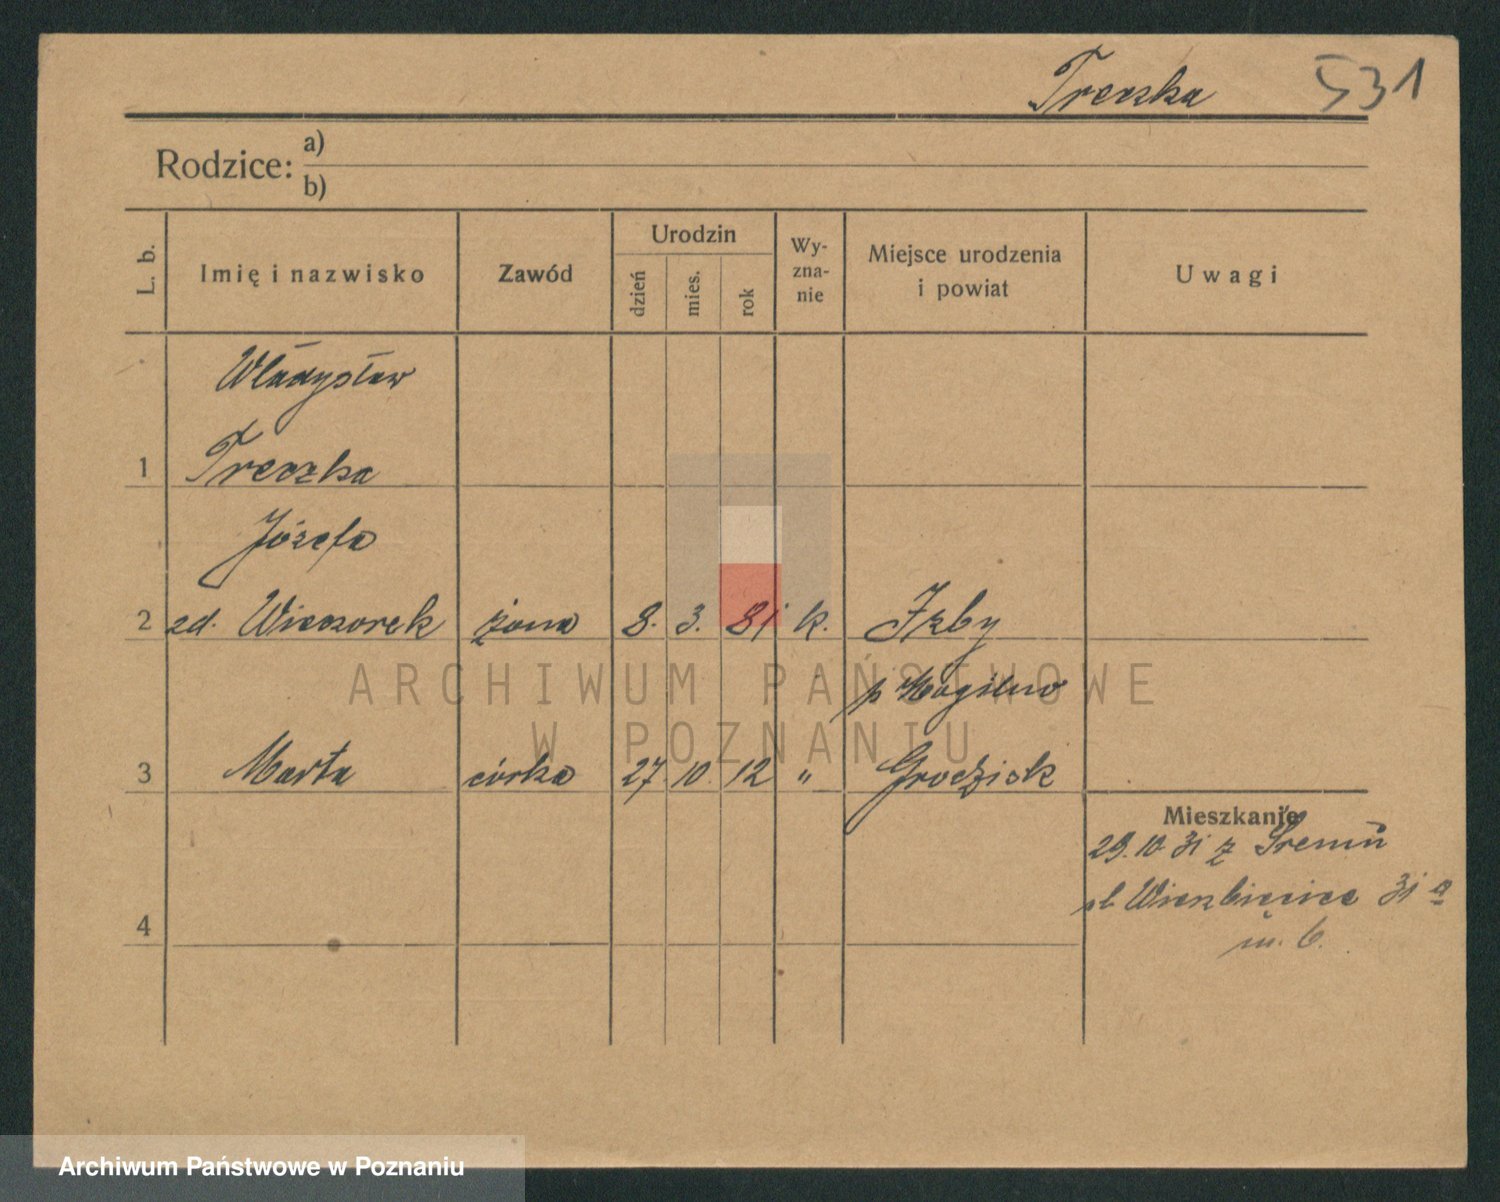 Treczka 531
Rodzice: a)
b)
L. b. Imię i nazwisko Zawód Urodzin dzień mies. rok Wy-zna-nie Miejsce urodzenia i powiat Uwagi
Władysław
1 Treczka
Józefa
2 zd. Wieczorek żona 8. 3. 81 k. Izby
p Mogilno
3 Marta córka 27 10. 12 " Grodzisk
Mieszkanie
29. 10 31 z Śremu
ul. Wierzbięcice 31 a
4 m. 6.
ARCHIWUM PAŃSTWOWE
W POZNANIU
Archiwum Państwowe w Poznaniu